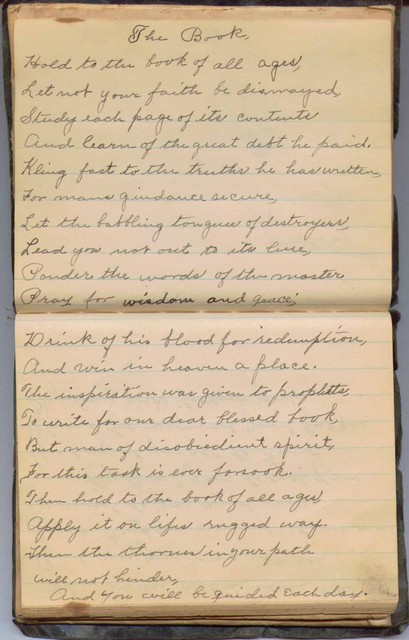 The Book,
Hold to the book of all ages,
Let not your faith be dismayed,
Study each page of its contents
And learn of the great debt he paid.
Kling fast to the truths he has written,
For mans guidance secure,
Let the babbling tongues of destroyers,
Lead you not out to its lure,
Ponder the words of the master
Pray for wisdom and grace;
Drink of his blood for redemption,
And win in heaven a place.
The inspiration was given to prophets,
To write for our dear blessed book,
But man of disobiedient spirit,
For this task is ever forsook.
Then hold to the book of all ages
Apply it on lifes rugged way.
Then the thornes in your path
will not hinder,
And you will be guided Each day.